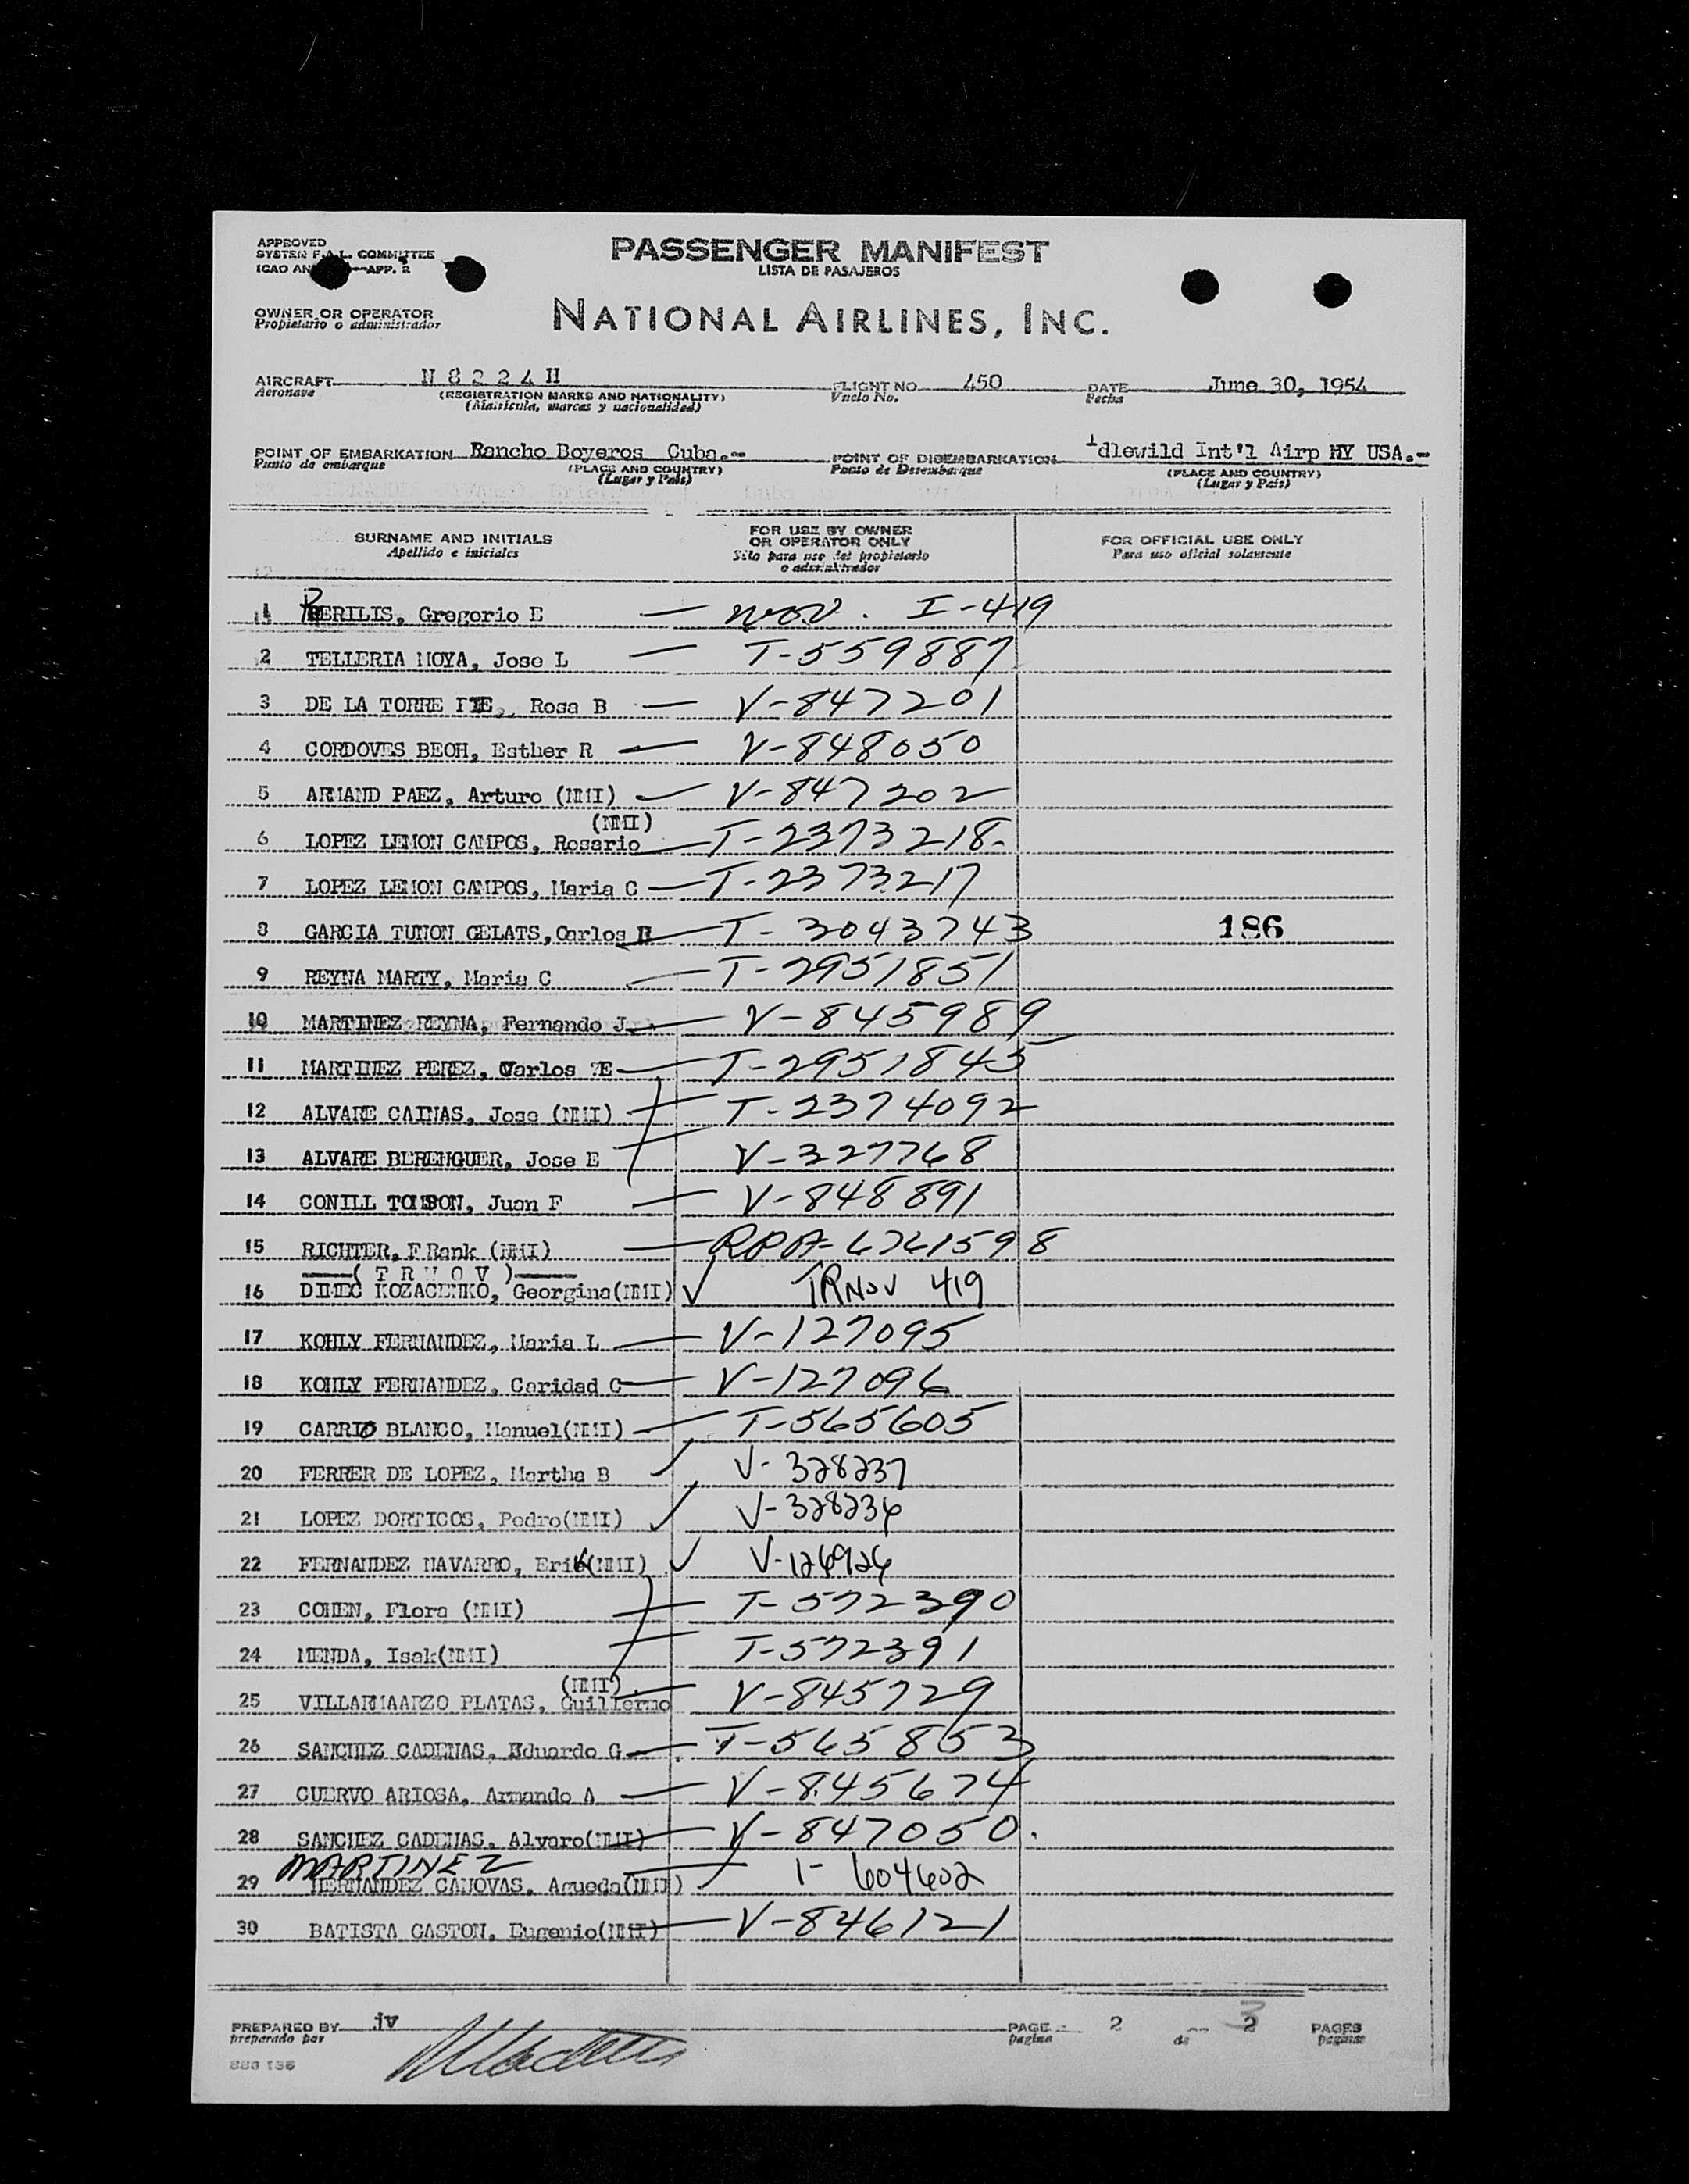 APPROVED
SYSTEM F.A.L. COMMITTEE
ICAO AN —APP. 2
PASSENGER MANIFEST
LISTA DE PASAJEROS
OWNER OR OPERATOR
Propietario o administrador
NATIONAL AIRLINES, INC.
AIRCRAFT N 8 2 2 4 H FLIGHT NO. 450 DATE June 30, 1954
Aeronave (REGISTRATION MARKS AND NATIONALITY) Vuelo No. Fecha
(Matricula, marcas y nacionalidad)
POINT OF EMBARKATION Rancho Boyeros Cuba.- POINT OF DISEMBARKATION Idlewild Int'l Airp NY USA.-
Punto de embarque (PLACE AND COUNTRY) Punto de Desembarque (PLACE AND COUNTRY)
(Lugar y País) (Lugar y País)
SURNAME AND INITIALS FOR USE BY OWNER OR OPERATOR ONLY FOR OFFICIAL USE ONLY
Apellido e iniciales Sólo para uso del propietario o administrador Para uso oficial solamente
1 PERILIS, Gregorio E — NOV. I-419
2 TELLERIA MOYA, Jose L — T-559887
3 DE LA TORRE, Rosa B — V-847201
4 CORDOVES BEOH, Esther R — V-848050
5 ARMAND PAEZ, Arturo (NMI) — V-847202
(NMI)
6 LOPEZ LEMON CAMPOS, Rosario — T-2373218-
7 LOPEZ LEMON CAMPOS, Maria C — T-2373217
8 GARCIA TUNON GELATS, Carlos E — T-3043743 186
9 REYNA MARTY, Maria C — T-2951851
10 MARTINEZ REYNA, Fernando J — V-845989
11 MARTINEZ PEREZ, Carlos E — T-2951845
12 ALVARE CAINAS, Jose (NMI) — T-2374092
13 ALVARE BERENGUER, Jose E — V-327768
14 CONILL, Juan F — V-848891
15 RICHTER, FRank (NMI) — RPA-6761598
—( T R W O V )—
16 DIMEC KOZACENKO, Georgina(NMI) ✓ TRWOV 419
17 KOHLY FERNANDEZ, Maria L — V-127095
18 KOHLY FERNANDEZ, Caridad C — V-127096
19 CARRIO BLANCO, Manuel(NMI) — T-565605
20 FERRER DE LOPEZ, Martha B ✓ V-328237
21 LOPEZ DORTICOS, Pedro(NMI) ✓ V-328236
22 FERNANDEZ NAVARRO, Erik(NMI) ✓ V-126926
23 COHEN, Flora (NMI) — T-572390
24 MENDA, Isak(NMI) — T-572391
(NMI)
25 VILLARMAARZO PLATAS, Guillermo — V-845729
26 SANCHEZ CADENAS, Eduardo G — T-565853
27 CUERVO ARIOSA, Armando A — V-845674
28 SANCHEZ CADENAS, Alvaro(NMI) — V-847050.
MARTINEZ
29 HERNANDEZ CANOVAS, Agueda(NMI) — T-604602
30 BATISTA GASTON, Eugenio(NMI) — V-846121
PREPARED BY jv PAGE 2 2 3 PAGES
preparado por pagina de paginas